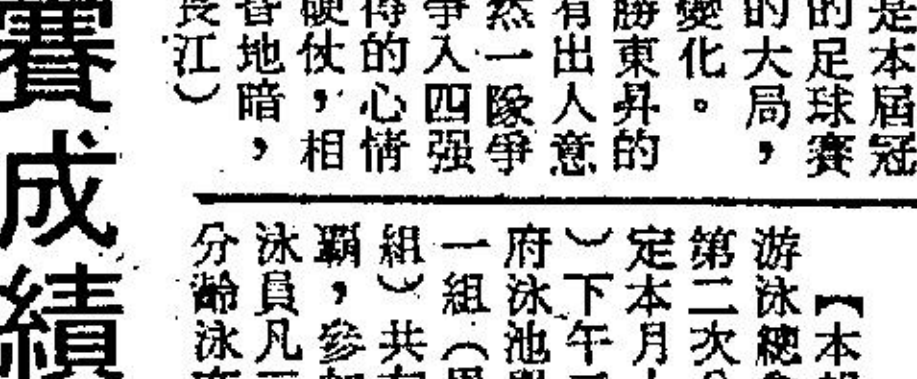 是本屆冠
的足球賽
的大局，
變化。
勝東昇的
有出人意
然一隊爭
爭入四强
得的心情
硬仗，相
昏地暗，
長江）
【本報
游泳總會
第二次分
定本月
）下午
府泳池
一組（男
組）共
霸，參加
泳員凡
分齡泳
賽成績